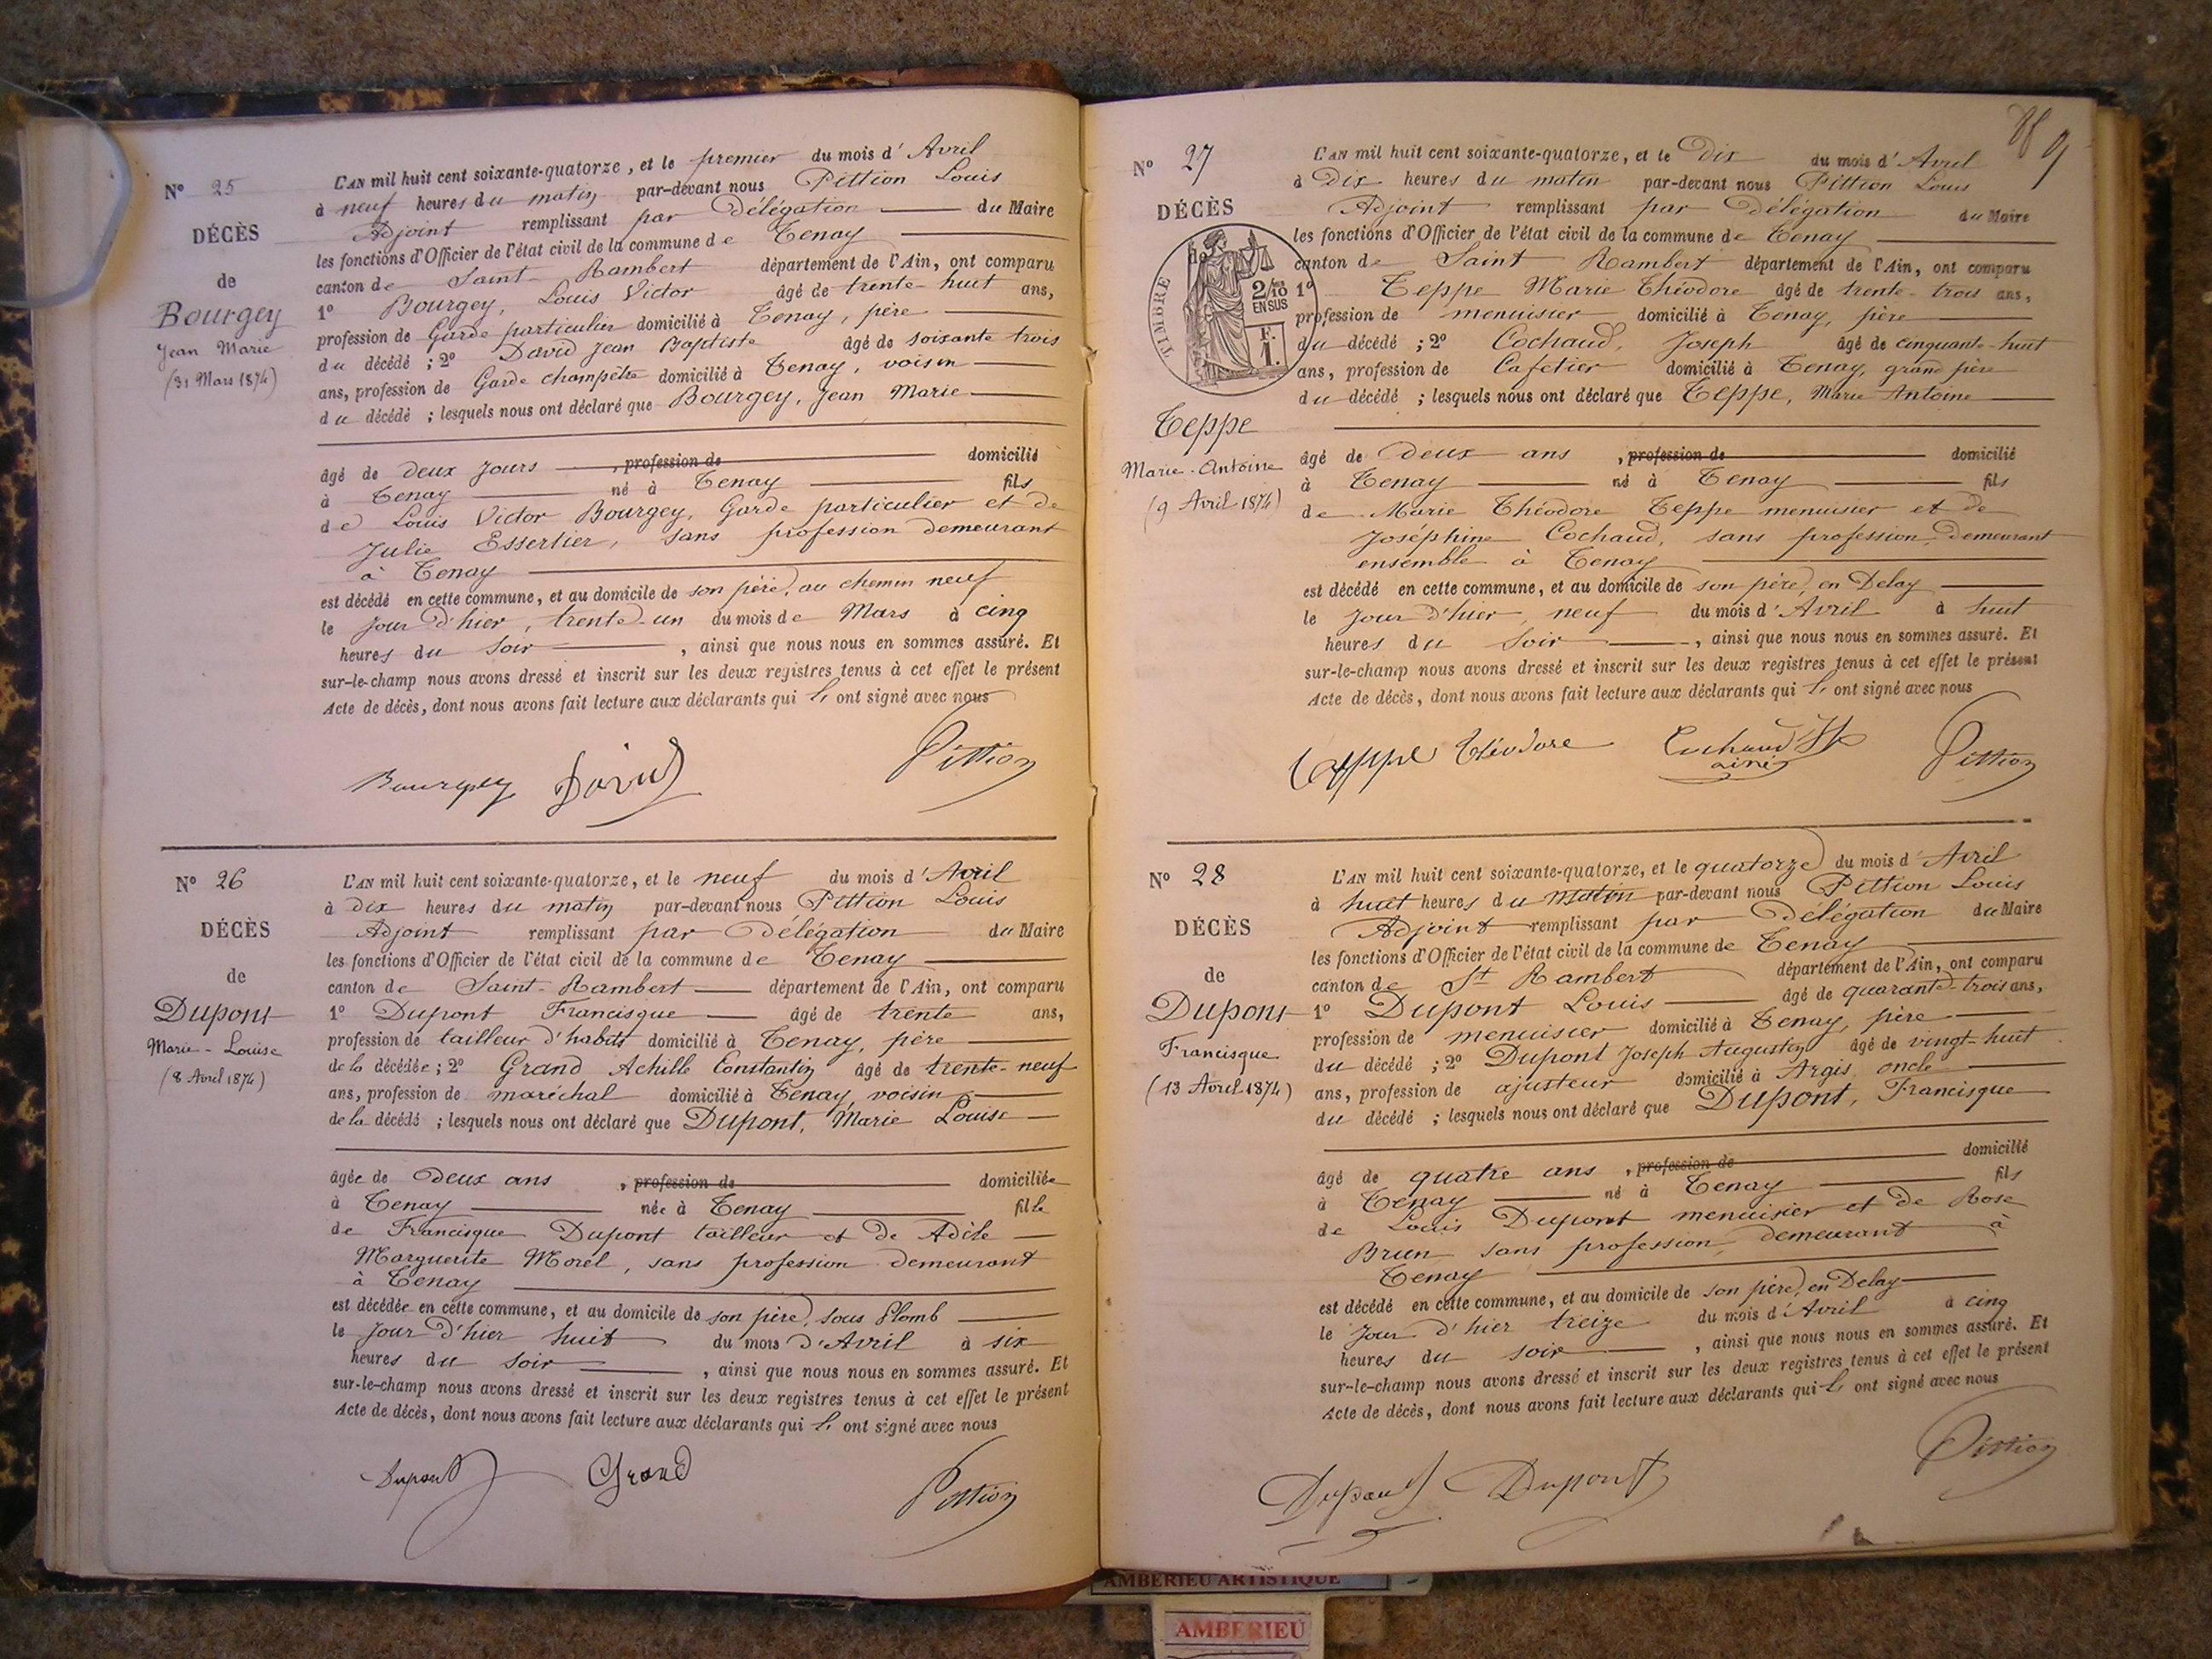 N° 25
DÉCÈS
de
Bourgey
Jean Marie
(31 Mars 1874)
L'AN mil huit cent soixante-quatorze, et le premier du mois d'Avril
à neuf heures du matin par-devant nous Pittion Louis
Adjoint remplissant par Délégation du Maire
les fonctions d'Officier de l'état civil de la commune de Tenay
canton de Saint-Rambert département de l'Ain, ont comparu
1° Bourgey, Louis Victor âgé de trente-huit ans,
profession de Garde particulier domicilié à Tenay, père
du décédé ; 2° David Jean Baptiste âgé de soixante trois
ans, profession de Garde champêtre domicilié à Tenay, voisin
du décédé ; lesquels nous ont déclaré que Bourgey, Jean Marie
âgé de deux jours , profession de domicilié
à Tenay né à Tenay fils
de Louis Victor Bourgey, Garde particulier et de
Julie Essertier, sans profession demeurant
à Tenay
est décédé en cette commune, et au domicile de son père, au chemin neuf
le jour d'hier, trente-un du mois de Mars à cinq
heures du soir , ainsi que nous nous en sommes assuré. Et
sur-le-champ nous avons dressé et inscrit sur les deux registres tenus à cet effet le présent
Acte de décès, dont nous avons fait lecture aux déclarants qui ont signé avec nous
Bourgey David Pittion
N° 26
DÉCÈS
de
Dupont
Marie-Louise
(8 Avril 1874)
L'AN mil huit cent soixante-quatorze, et le neuf du mois d'Avril
à dix heures du matin par-devant nous Pittion Louis
Adjoint remplissant par Délégation du Maire
les fonctions d'Officier de l'état civil de la commune de Tenay
canton de Saint-Rambert département de l'Ain, ont comparu
1° Dupont Francisque âgé de trente ans,
profession de tailleur d'habits domicilié à Tenay, père
de la décédée ; 2° Grand Achille Constantin âgé de trente-neuf
ans, profession de maréchal domicilié à Tenay, voisin
de la décédé ; lesquels nous ont déclaré que Dupont, Marie Louise
âgée de deux ans , profession de domiciliée
à Tenay née à Tenay fille
de Francisque Dupont tailleur et de Adèle
Marguerite Morel, sans profession demeurant
à Tenay
est décédée en cette commune, et au domicile de son père, sous Plomb
le jour d'hier huit du mois d'Avril à six
heures du soir , ainsi que nous nous en sommes assuré. Et
sur-le-champ nous avons dressé et inscrit sur les deux registres tenus à cet effet le présent
Acte de décès, dont nous avons fait lecture aux déclarants qui ont signé avec nous
Dupont Grand Pittion
N° 27
DÉCÈS
de
TIMBRE
2/10
EN SUS
F.
1.
Teppe
Marie-Antoine
(9 Avril 1874)
L'AN mil huit cent soixante-quatorze, et le Dix du mois d'Avril
à Dix heures du matin par-devant nous Pittion Louis
Adjoint remplissant par Délégation du Maire
les fonctions d'Officier de l'état civil de la commune de Tenay
canton de Saint Rambert département de l'Ain, ont comparu
1° Teppe Marie Théodore âgé de trente-trois ans,
profession de menuisier domicilié à Tenay, père
du décédé ; 2° Cochaud, Joseph âgé de cinquante-huit
ans, profession de Cafetier domicilié à Tenay, grand père
du décédé ; lesquels nous ont déclaré que Teppe, Marie Antoine
âgé de Deux ans , profession de domicilié
à Tenay né à Tenay fils
de Marie Théodore Teppe menuisier et de
Joséphine Cochaud, sans profession, demeurant
ensemble à Tenay
est décédé en cette commune, et au domicile de son père, en Delay
le jour d'hier, neuf du mois d'Avril à huit
heures du soir , ainsi que nous nous en sommes assuré. Et
sur-le-champ nous avons dressé et inscrit sur les deux registres tenus à cet effet le présent
Acte de décès, dont nous avons fait lecture aux déclarants qui ont signé avec nous
Teppe Théodore Cochaud Jh Pittion
ainé
N° 28
DÉCÈS
de
Dupont
Francisque
(13 Avril 1874)
L'AN mil huit cent soixante-quatorze, et le quatorze du mois d'Avril
à huit heures du matin par-devant nous Pittion Louis
Adjoint remplissant par Délégation du Maire
les fonctions d'Officier de l'état civil de la commune de Tenay
canton de St Rambert département de l'Ain, ont comparu
1° Dupont Louis âgé de quarante-trois ans,
profession de menuisier domicilié à Tenay, père
du décédé ; 2° Dupont Joseph Augustin âgé de vingt-huit
ans, profession de ajusteur domicilié à Argis, oncle
du décédé ; lesquels nous ont déclaré que Dupont, Francisque
âgé de quatre ans , profession de domicilié
à Tenay né à Tenay fils
de Louis Dupont menuisier et de Rose
Brun sans profession, demeurant à
Tenay
est décédé en cette commune, et au domicile de son père, en Delay
le jour d'hier treize du mois d'Avril à cinq
heures du soir , ainsi que nous nous en sommes assuré. Et
sur-le-champ nous avons dressé et inscrit sur les deux registres tenus à cet effet le présent
Acte de décès, dont nous avons fait lecture aux déclarants qui ont signé avec nous
Dupont Dupont Pittion
AMBERIEU ARTISTIQUE
AMBERIEU